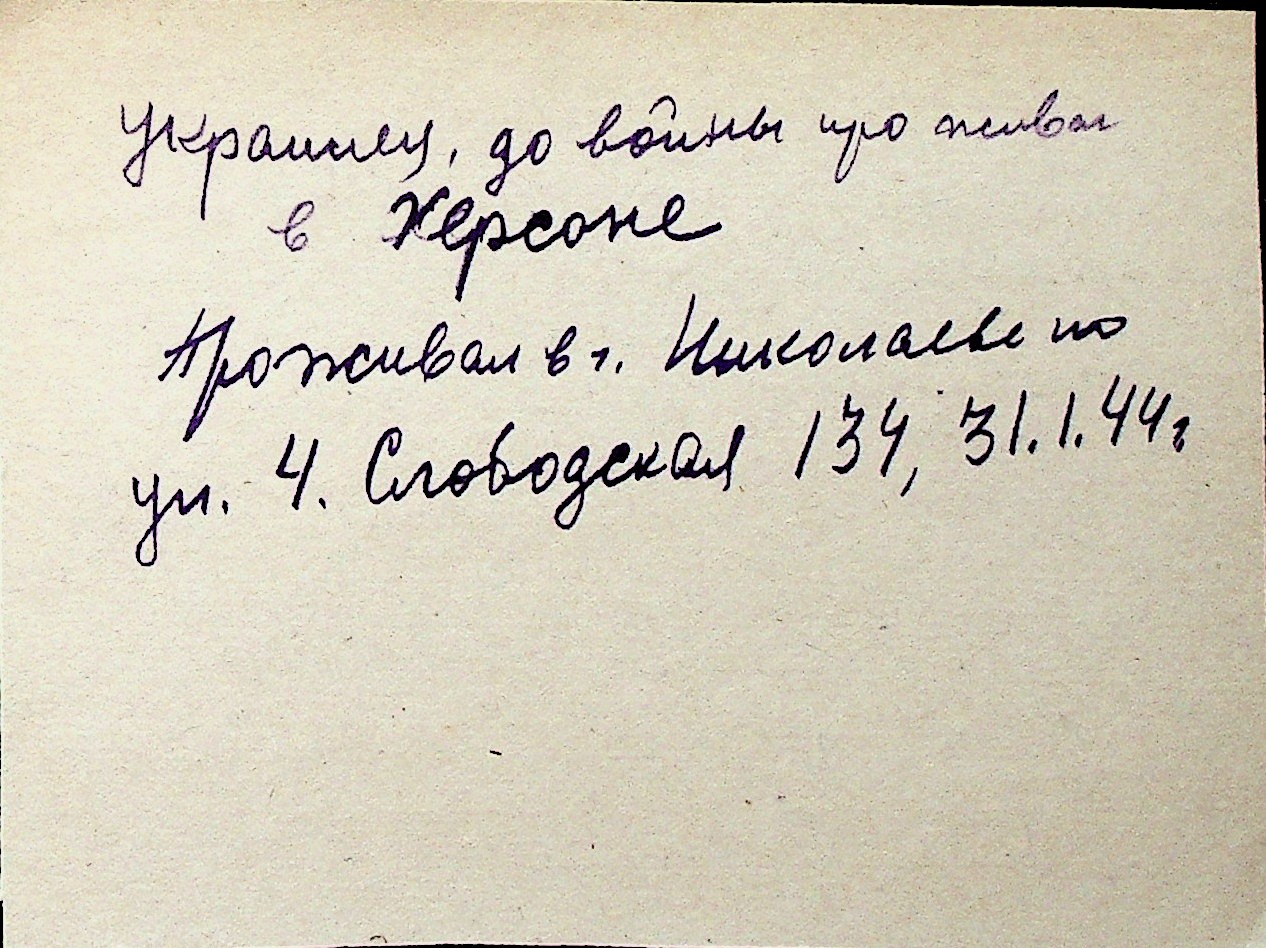 Украинец, до войны проживал
в Херсоне
Проживал в г. Николаеве по
ул. 4. Слободская 134, 31.1.44г